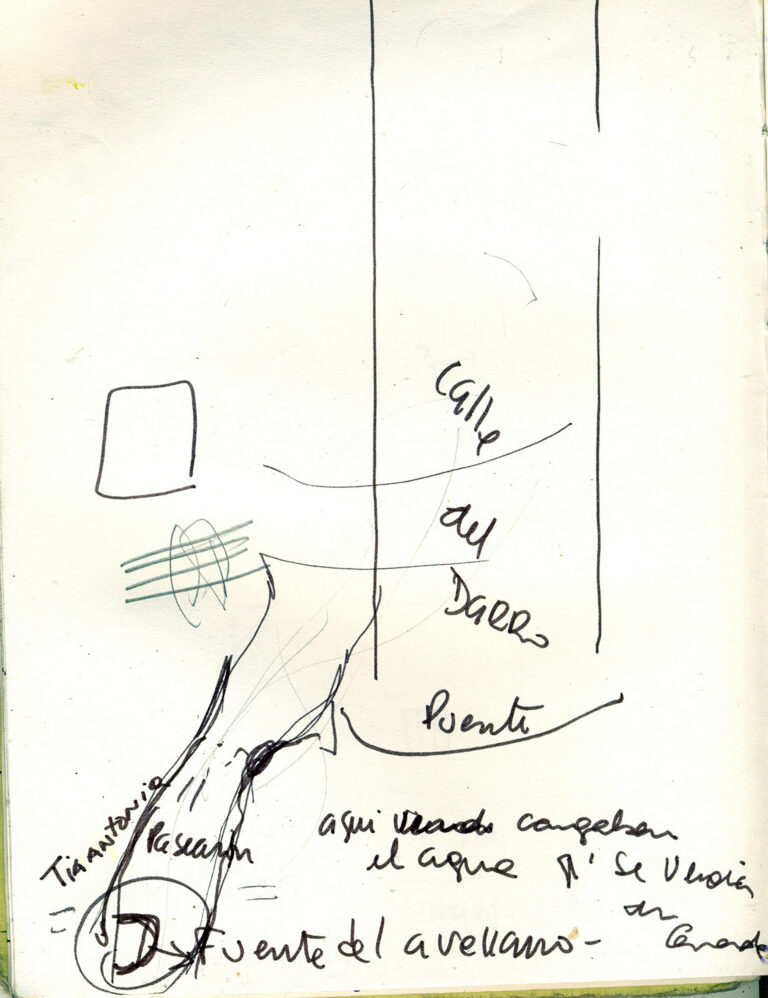 Calle
del
DARRO
Puente
Tia antonia
Pasearon
aqui cargaban
el agua q' Se Vendia
en Granada
Fuente del avellano -